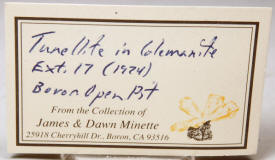 Tunellite in Colemanite
Ext. 17 (1974)
Boron Open Pit
From the Collection of
James & Dawn Minette
25918 Cherryhill Dr., Boron, CA 93516